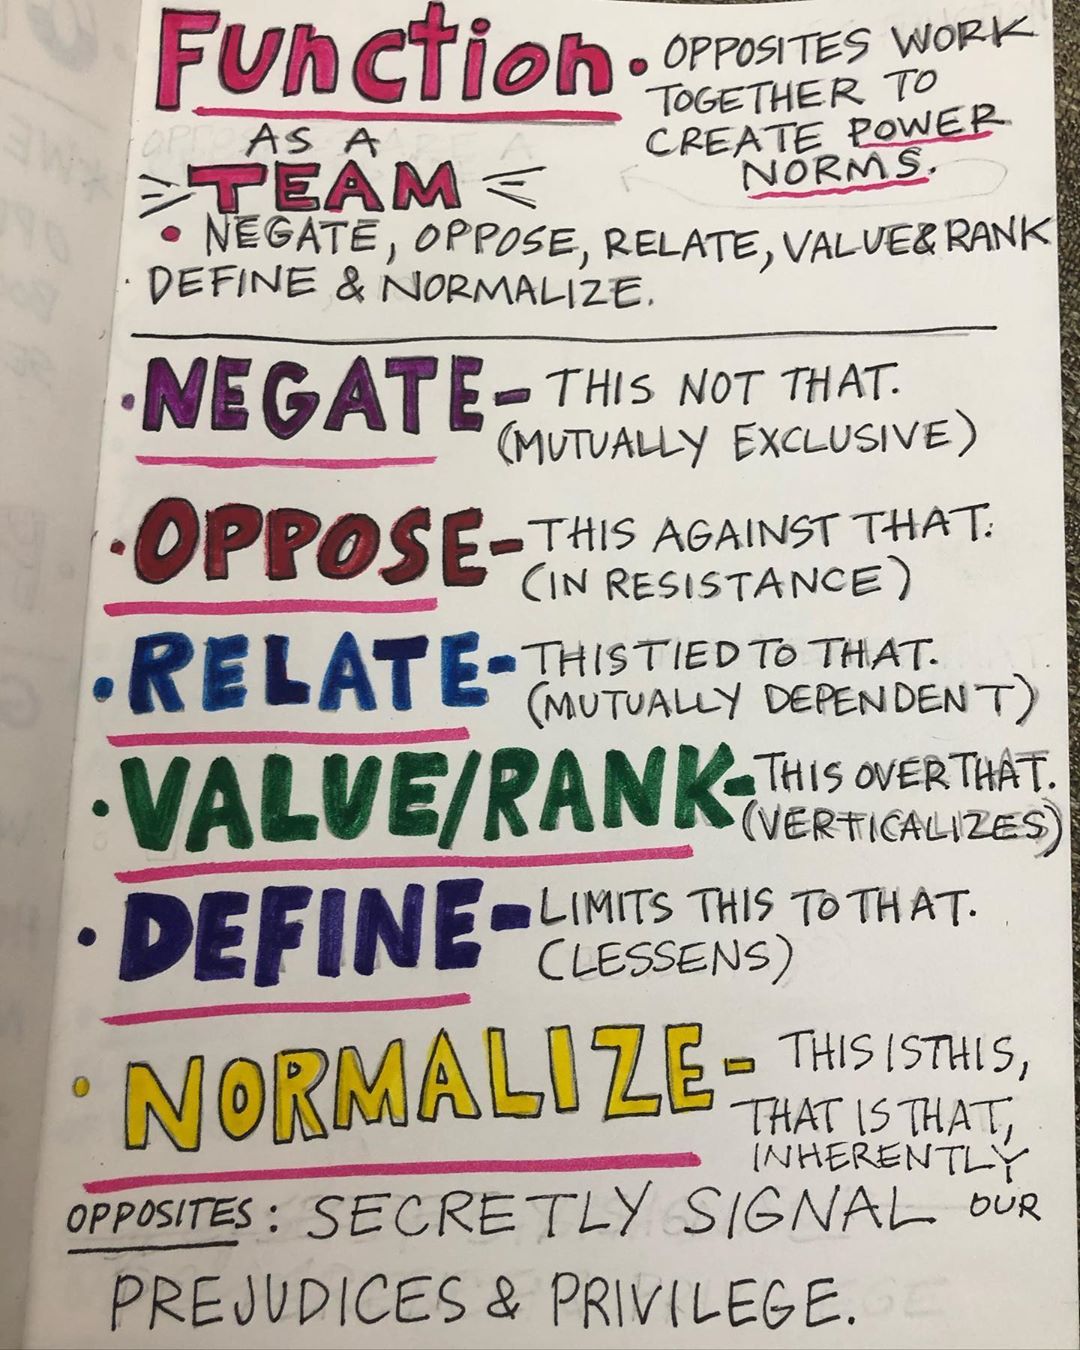 Function
• OPPOSITES WORK
TOGETHER TO
CREATE POWER
NORMS.
AS A
TEAM
• NEGATE, OPPOSE, RELATE, VALUE & RANK
DEFINE & NORMALIZE.
• NEGATE - THIS NOT THAT.
(MUTUALLY EXCLUSIVE)
• OPPOSE - THIS AGAINST THAT.
(IN RESISTANCE)
• RELATE - THIS TIED TO THAT.
(MUTUALLY DEPENDENT)
• VALUE/RANK - THIS OVER THAT.
(VERTICALIZES)
• DEFINE - LIMITS THIS TO THAT.
(LESSENS)
• NORMALIZE - THIS IS THIS,
THAT IS THAT,
INHERENTLY
OPPOSITES: SECRETLY SIGNAL OUR
PREJUDICES & PRIVILEGE.